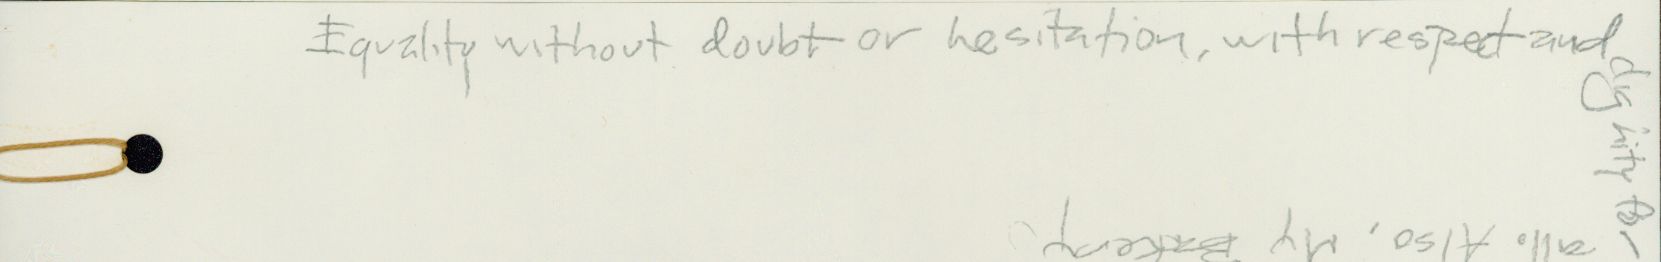 Equality without doubt or hesitation, with respect and
dignity for
all. Also, My Bakery